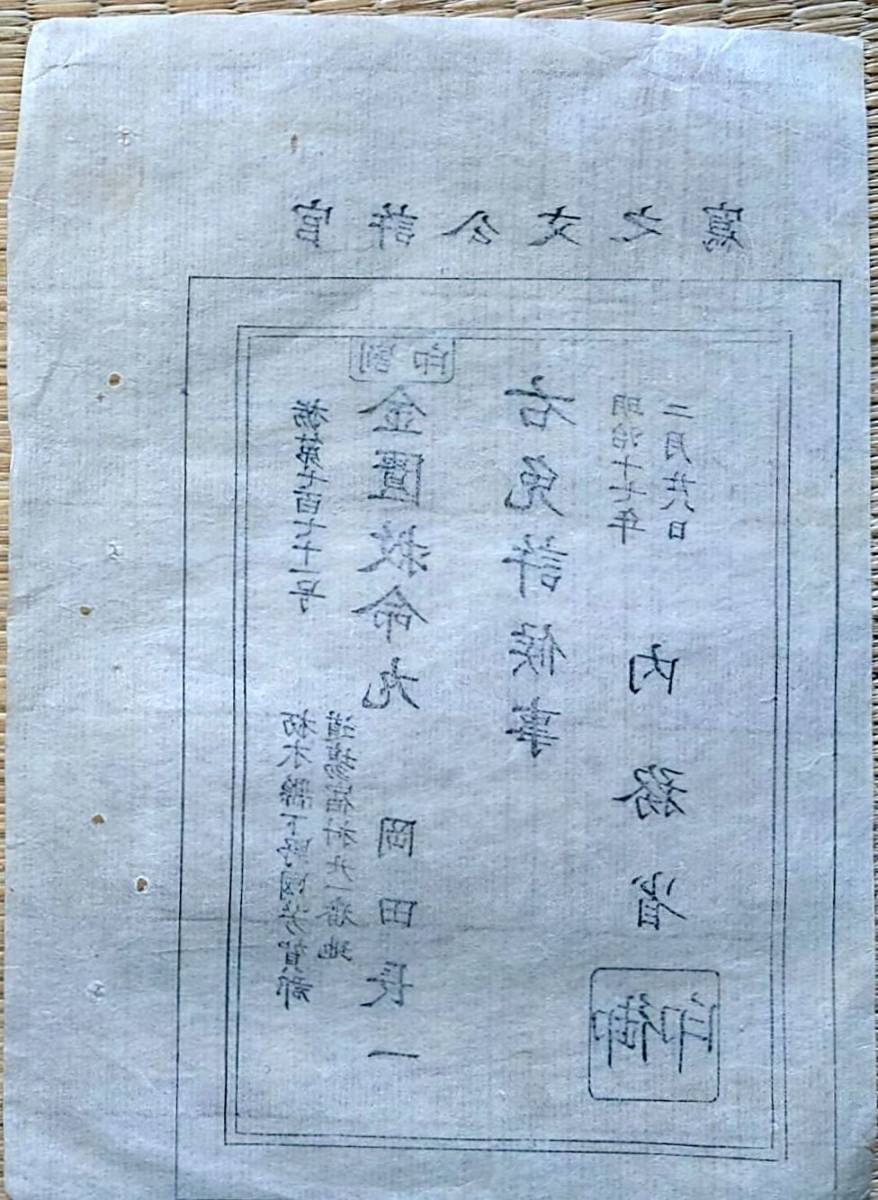 官許公文之寫
七百七十一号
栃木縣下野國芳賀郡
道場宿村九一番地
割印
金匱救命丸
岡田長一
右免許候事
明治十七年
二月廿八日
内務省
御印